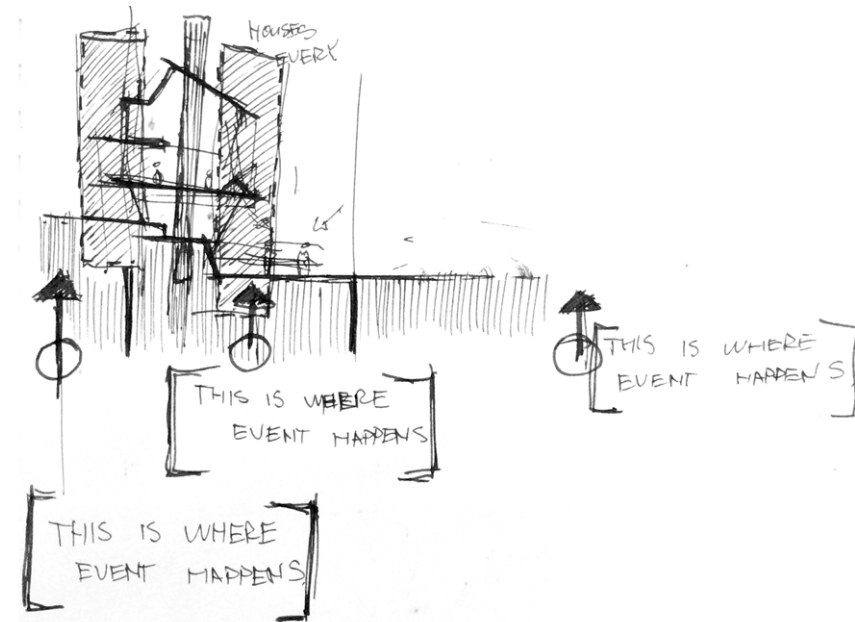 HOUSES
EVERY
THIS IS WHERE
EVENT HAPPENS
THIS IS WHERE
EVENT HAPPENS
THIS IS WHERE
EVENT HAPPENS